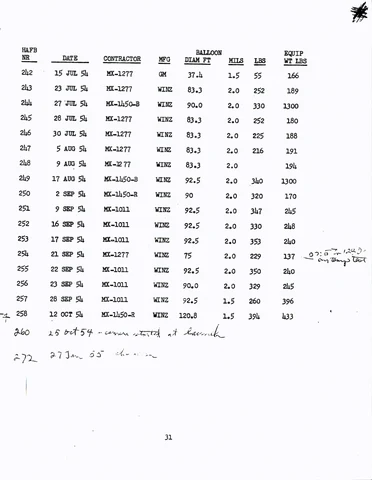 HAFB BALLOON EQUIP
NR DATE CONTRACTOR MFG DIAM FT MILS LBS WT LBS
242 15 JUL 54 MX-1277 GM 37.4 1.5 55 166
243 23 JUL 54 MX-1277 WINZ 83.3 2.0 252 189
244 27 JUL 54 MX-1450-B WINZ 90.0 2.0 330 1300
245 28 JUL 54 MX-1277 WINZ 83.3 2.0 252 180
246 30 JUL 54 MX-1277 WINZ 83.3 2.0 225 188
247 5 AUG 54 MX-1277 WINZ 83.3 2.0 216 191
248 9 AUG 54 MX-1277 WINZ 83.3 2.0 194
249 17 AUG 54 MX-1450-B WINZ 92.5 2.0 340 1300
250 2 SEP 54 MX-1450-R WINZ 90 2.0 320 170
251 9 SEP 54 MX-1011 WINZ 92.5 2.0 347 245
252 16 SEP 54 MX-1011 WINZ 92.5 2.0 330 248
253 17 SEP 54 MX-1011 WINZ 92.5 2.0 353 240
254 21 SEP 54 MX-1277 WINZ 75 2.0 229 137
255 22 SEP 54 MX-1011 WINZ 92.5 2.0 350 240
256 23 SEP 54 MX-1011 WINZ 90.0 2.0 329 245
257 28 SEP 54 MX-1011 WINZ 92.5 1.5 260 396
258 12 OCT 54 MX-1450-R WINZ 120.8 1.5 394 433
260 25 Oct 54 - started at launch
272 27 Jan 55
31